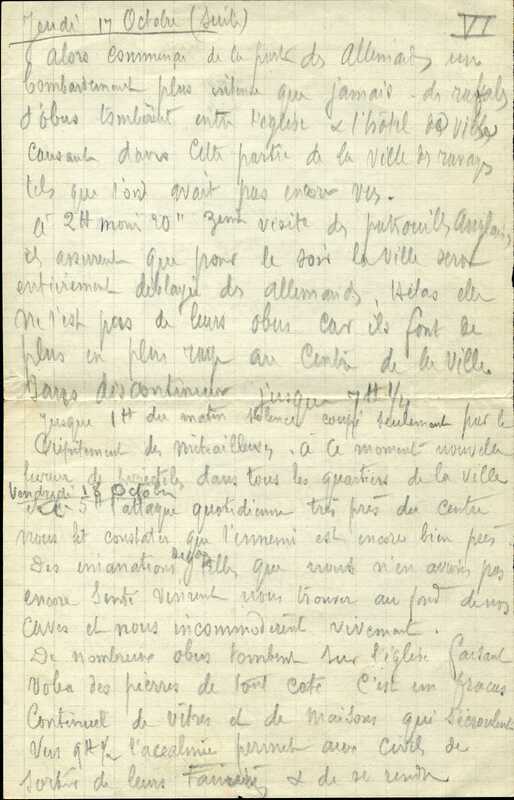 Jeudi 17 Octobre (Suite)
VI
Alors commença de la part des Allemands un
bombardement plus intense que jamais. des rafales
d'obus tombèrent entre l'église & l'hôtel de Ville
causant dans cette partie de la ville des ravages
tels que l'ont avait pas encore vus.
à 2H moins 20" 3eme visite des patrouilles Anglaises
ils assurent que pour le soir la ville sera
entièrement déblayée des allemands, Hélas elle
ne l'est pas de leurs obus car ils font de
plus en plus rage au Centre de la Ville
Sans discontinuer jusque 7H 1/4
Jusque 1H du matin silence coupé seulement par le
Crépitement des mitrailleuses. à ce moment nouvelle
de projectiles dans tous les quartiers de la ville
Vendredi 18 Octobre
5H attaque quotidienne très près du centre
nous fit constater que l'ennemi est encore bien près
Des émanations de gaz telles que nous n'en avions pas
encore senti vinrent nous trouver au fond de nos
caves et nous incommodèrent vivement.
De nombreux obus tombent sur l'église faisant
voler des pierres de tout coté C'est un fracas
Continuel de vitres et de maisons qui s'écroulent
Vers 9H 1/2 l'accalmie permet aux civils de
sortir de leurs & de se rendre